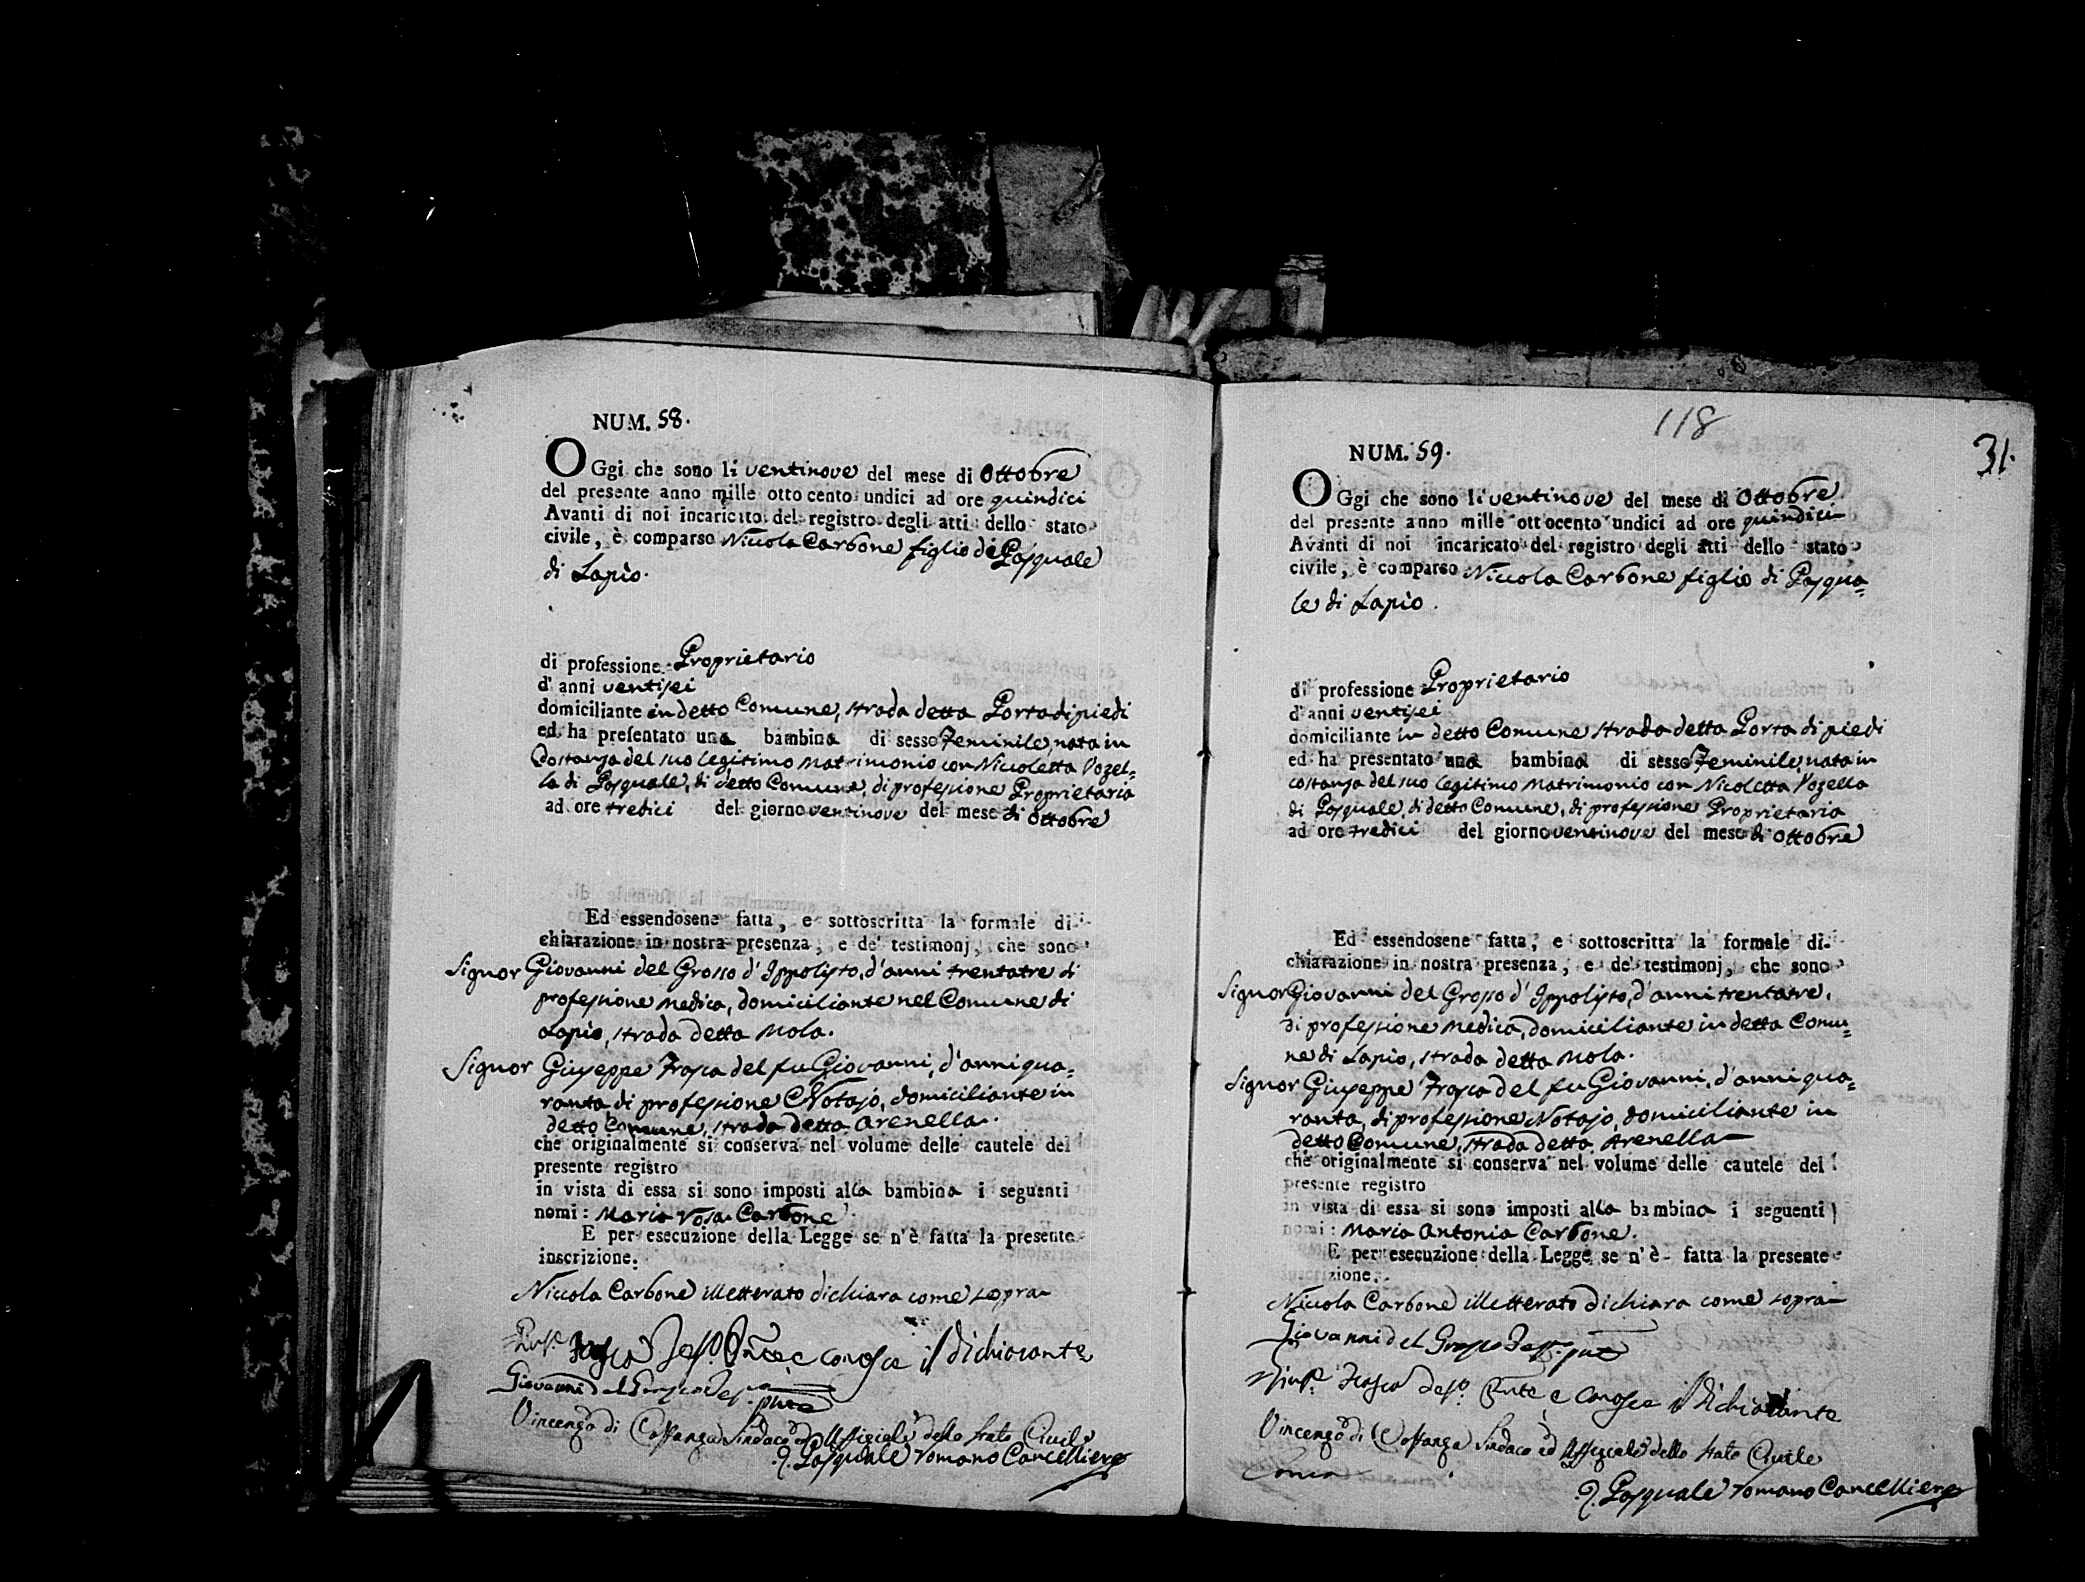 NUM. 58.
OGgi che sono li ventinove del mese di Ottobre
del presente anno mille otto cento undici ad ore quindici
Avanti di noi incaricato del registro degli atti dello stato
civile, è comparso Niccola Carbone figlio di Pasquale
di Lapio.
di professione Proprietario
d'anni ventisei
domiciliante in detto Comune, strada detta Porta di piedi
ed ha presentato una bambina di sesso Feminile, nata in
costanza del suo legitimo matrimonio con Niccoletta Vozel=
la di Pasquale, di detto Comune, di professione Proprietaria
ad ore tredici del giorno ventinove del mese di Ottobre
Ed essendosene fatta, e sottoscritta la formale di-
chiarazione in nostra presenza, e de' testimonj, che sono
Signor Giovanni del Grosso d'Ippolisto, d'anni trentatre di
professione Medica, domiciliante nel Comune di
Lapio, strada detta Mola.
Signor Giuseppe Frasca del fu Giovanni, d'anni qua=
ranta di professione Notajo, domiciliante in
detto Comune, strada detta Arenella.
che originalmente si conserva nel volume delle cautele del
presente registro
in vista di essa si sono imposti alla bambina i seguenti
nomi: Maria Rosa Carbone
E per esecuzione della Legge se n'è fatta la presente
inscrizione.
Niccola Carbone illetterato dichiara come sopra
Frasca e conosce il dichiarante
Giovanni del Grosso
Vincenzo di Costanzo Sindaco ed Uffiziale dello Stato Civile
Pasquale Romano Cancelliere
118
31.
NUM. 59.
OGgi che sono li ventinove del mese di Ottobre
del presente anno mille ottocento undici ad ore quindici
Avanti di noi incaricato del registro degli atti dello stato
civile, è comparso Niccola Carbone figlio di Pasqua=
le di Lapio.
di professione Proprietario
d'anni ventisei
domiciliante in detto Comune strada detta Porta di piedi
ed ha presentato una bambina di sesso Feminile, nata in
costanza del suo legitimo matrimonio con Nicoletta Vozella
di Pasquale, di detto Comune, di professione Proprietaria
ad ore tredici del giorno ventinove del mese di Ottobre
Ed essendosene fatta, e sottoscritta la formale di-
chiarazione in nostra presenza, e de' testimonj, che sono
Signor Giovanni del Grosso d'Ippolisto, d'anni trentatre,
di professione Medica, domiciliante in detta Comu=
ne di Lapio, strada detta Mola.
Signor Giuseppe Frasca del fu Giovanni, d'anni qua=
ranta, di professione Notajo, domiciliante in
detto Comune, strada detta Arenella
che originalmente si conserva nel volume delle cautele del
presente registro
in vista di essa si sono imposti alla bambina i seguenti
nomi: Maria Antonia Carbone.
E per esecuzione della Legge se n'è fatta la presente
inscrizione.
Niccola Carbone illetterato dichiara come sopra
Giovanni del Grosso
Frasca e conosce il dichiarante
Vincenzo di Costanzo Sindaco ed Uffiziale dello Stato Civile
Pasquale Romano Cancelliere